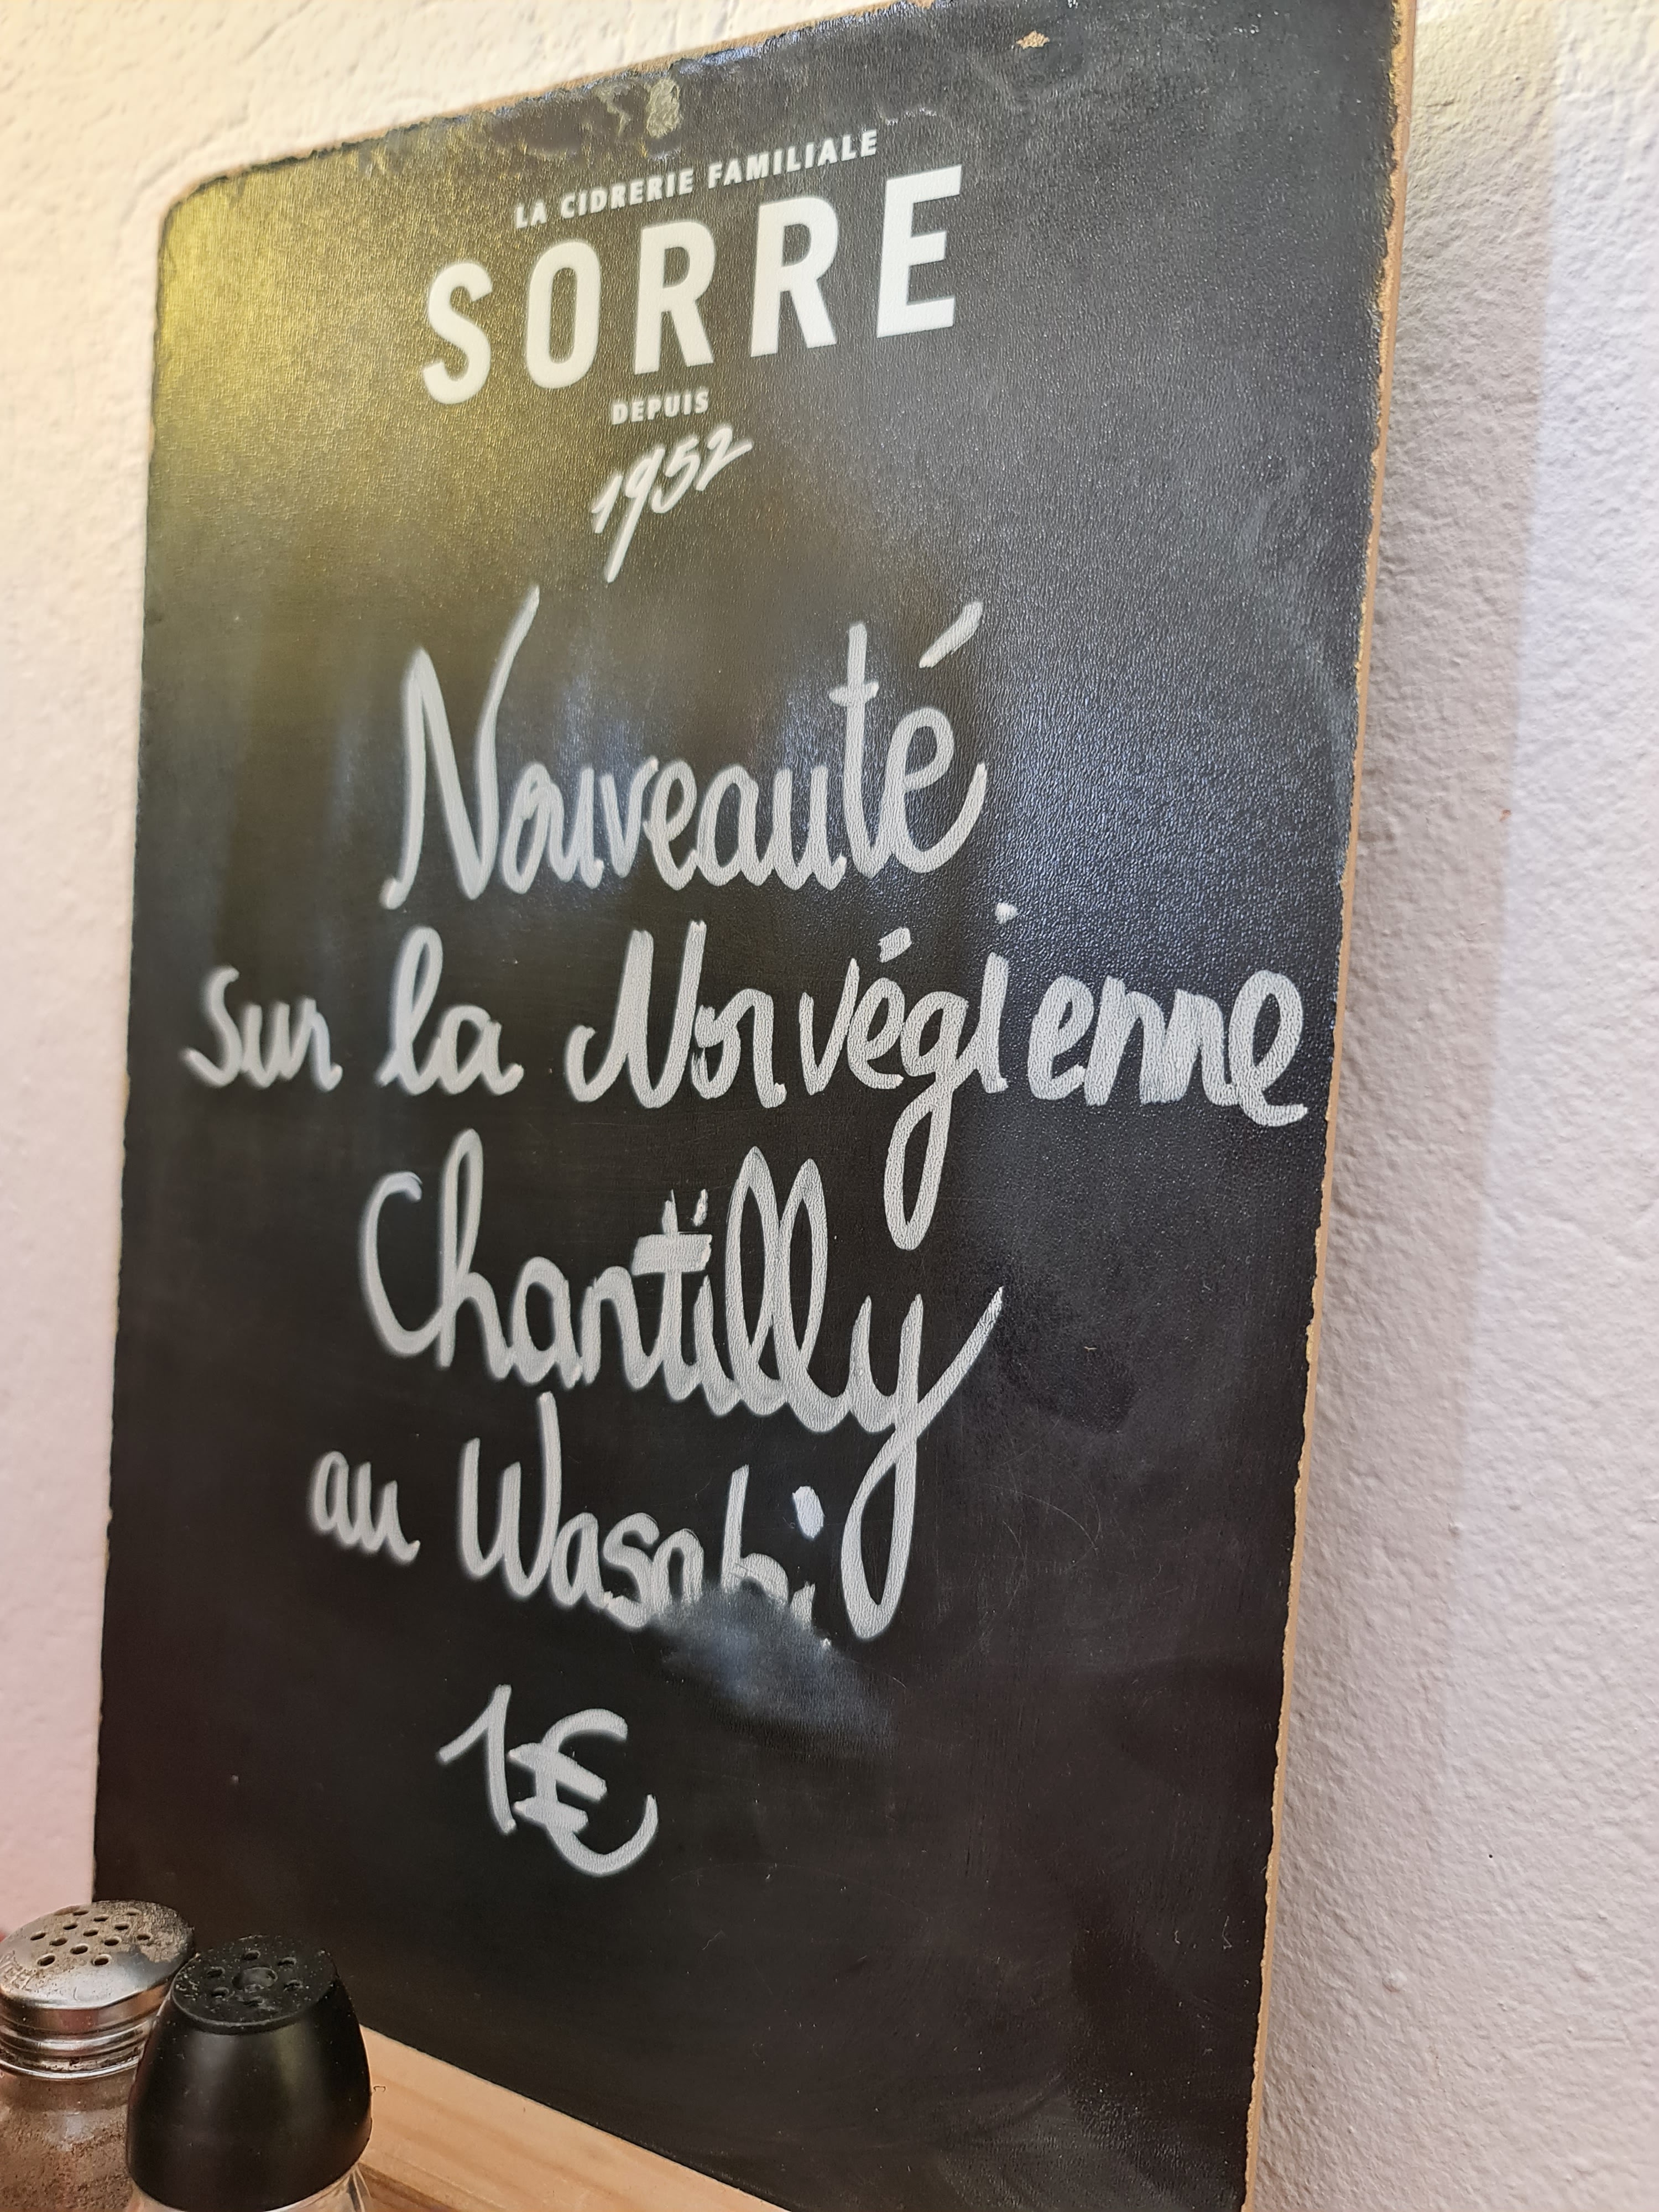 LA CIDRERIE FAMILIALE
SORRE
DEPUIS
1952
Nouveauté
sur la Norvégienne
Chantilly
au Wasabi
1€